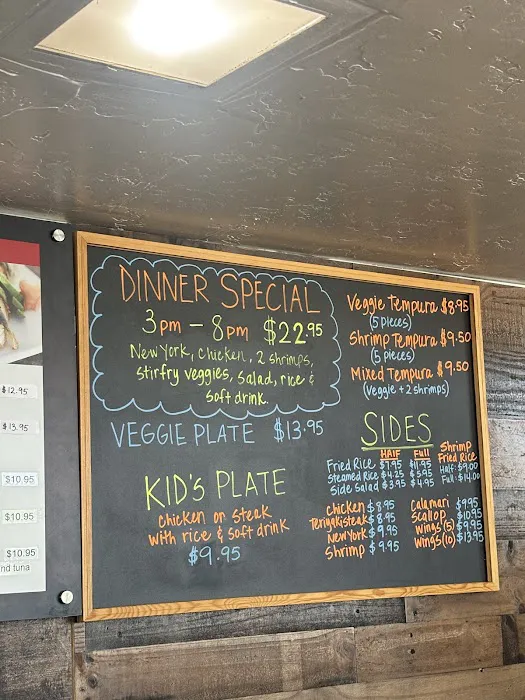 DINNER SPECIAL
3pm - 8pm $22.95
New York, Chicken, 2 shrimps,
stirfry veggies, salad, rice &
soft drink.
VEGGIE PLATE $13.95
KID'S PLATE
chicken or steak
with rice & soft drink
$9.95
Veggie Tempura $8.95
(5 pieces)
Shrimp Tempura $9.50
(5 pieces)
Mixed Tempura $9.50
(Veggie + 2 shrimps)
SIDES
HAlf Full
Fried Rice $7.95 $11.95
Steamed Rice $4.25 $5.95
Side Salad $3.95 $4.95
Shrimp
Fried Rice
Half: $9.00
Full: $14.00
Chicken $8.95
Teriyaki steak $8.95
New York $9.95
Shrimp $9.95
Calamari $9.95
Scallop $10.95
Wings (5) $9.95
Wings (10) $13.95
$12.95
$13.95
$10.95
$10.95
$10.95
nd tuna